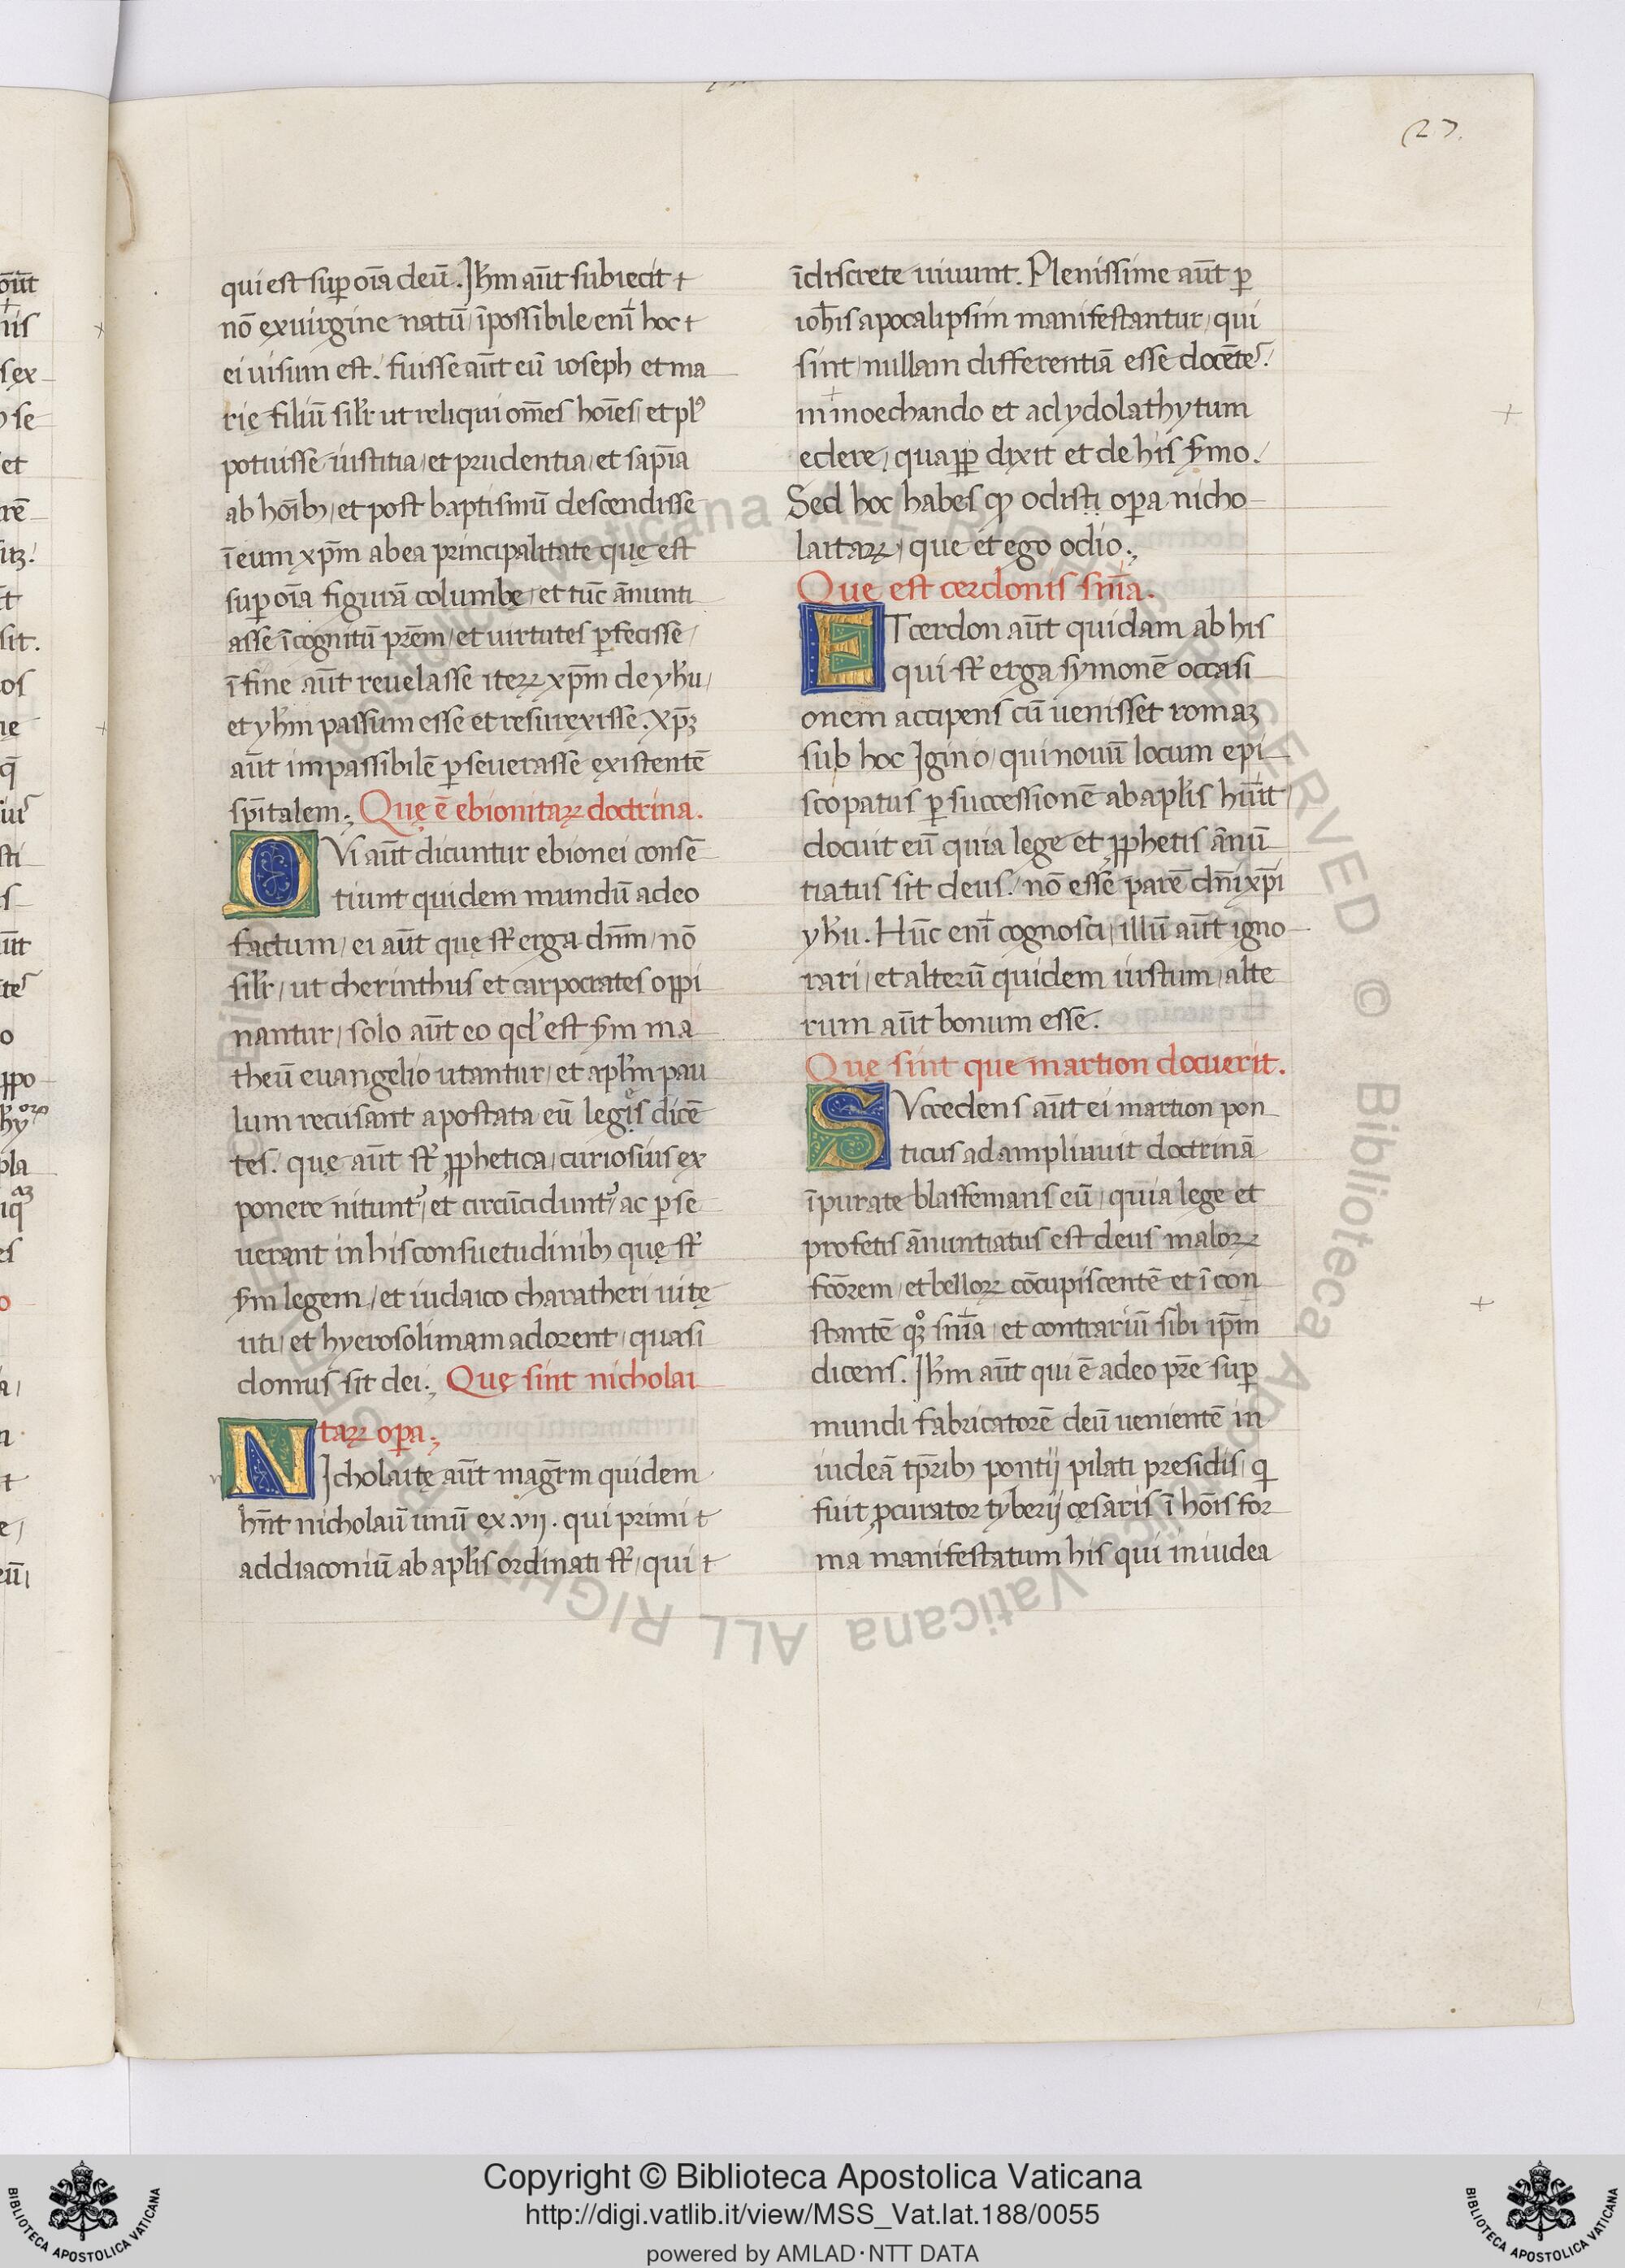 27.
qui est suꝑ oı̄a deū. Jhm̄ aūt subiecit
nō ex uirgine natū ı̄possibile enı̄ hoc
ei uisum est. fuisse aūt eū ioseph et ma
rię filiū silr̄ ut reliqui om̄es hoı̄es et plꝰ
potuisse iustitia et prudentia et sap̄ia
ab hoı̄bꝫ et post baptismū descendisse
ı̄ eum xp̄m ab ea principalitate quę est
suꝑ oı̄a figurā columbę et tūc ānunti
asse ı̄cognitū pr̄em et uirtutes ꝑfecisse
ı̄ fine aūt reuelasse iteꝝ xp̄m de yhu
et yhm̄ passum esse et resurexisse. Xp̄ꝫ
aūt impassibilē ꝑseuerasse ęxistentē
sp̄italem; Quę ē ebionitaꝝ doctrina.
QVi aūt dicuntur ebionei consē
tiunt quidem mundū a deo
factum ei aūt quę st̄ erga dn̄m nō
silr̄ ut cherinthus et carpocrates oppi
nantur solo aūt eo qđ est ẜm ma
theū euangelio utantur et aplm̄ pau
lum recusant apostata eū legis dicē
tes. quę aūt st̄ ꝓphetica curiosius ex
ponere nitunt᷑ et circūcidunt᷑ ac ꝑse
uerant in his consuetudinibꝫ quę st̄
ẜm legem et iudaico charatheri uitę
uti et hyerosolimam adorent quasi
domus sit dei; Quę sint nicholai
taꝝ oꝑa;
NJcholaitę aūt magr̄m quidem
hn̄t nicholaū unū ex .vij. qui primi
ad diaconiū ab aplis̄ ordinati st̄ qui
ı̄discrete uiuunt. Plenissime aūt ꝑ
ioh̄is apocalipsim manifestantur qui
sint nullam differentiā esse docētes
in moechando et ad ydolathytum
edere quaꝓꝑ dixit et de his ẜmo.
Sed hoc habes ꝙ odisti oꝑa nicho
laitaꝝ que et ego odio;
Que est cerdonis sn̄ia.
ET cerdon aūt quidam ab his
qui st̄ erga symonē occasi
onem accipens cū uenisset romaꝫ
sub hoc Jgino qui nouū locum epi
scopatus ꝑ successionē ab aplis̄ huı̄t
docuit eū quia lege et ꝓphetis ānū
tiatus sit deus. nō esse parē dn̄i xp̄i
yhu. Hūc enı̄ cognosci illū aūt igno
rari et alterū quidem iustum alte
rum aūt bonum esse.
Quę sint que martion docuerit.
SVccedens aūt ei martion pon
ticus adampliauit doctrinā
ı̄purate blasfemans eū quia lege et
profetis ānuntiatus est deus maloꝝ
fcōrem et belloꝝ cōcupiscentē et ı̄ con
stantē qꝫ sn̄ia et contrariū sibi ip̄m
dicens. Jhm̄ aūt qui ē a deo pr̄e suꝑ
mundi fabricatorē deū uenientē in
iudeā tp̄ribꝫ pontij pilati presidis q
fuit ꝓcurator tyberij cęsaris ı̄ hoı̄s for
ma manifestatum his qui in iudea
Copyright © Biblioteca Apostolica Vaticana
http://digi.vatlib.it/view/MSS_Vat.lat.188/0055
powered by AMLAD·NTT DATA